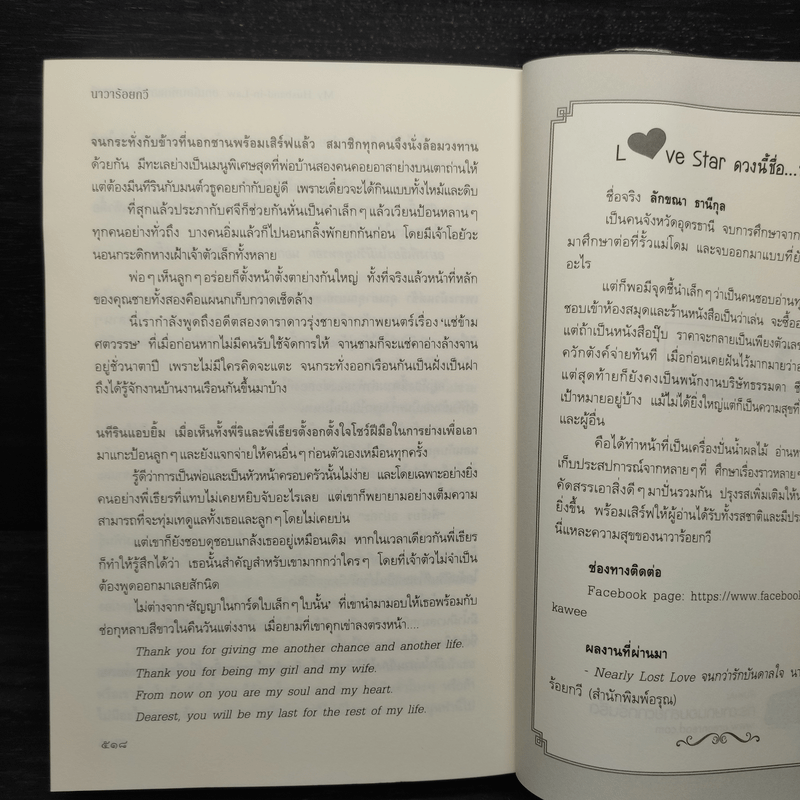 นาวาร้อยกวี
จนกระทั่งกับข้าวที่นอกชานพร้อมเสิร์ฟแล้ว สมาชิกทุกคนจึงนั่งล้อมวงทาน
ด้วยกัน มีทะเลย่างเป็นเมนูพิเศษสุดที่พ่อบ้านสองคนคอยอาสาย่างบนเตาถ่านให้
แต่ต้องมีนทีรินกับมนต์วธูคอยกำกับอยู่ดี เพราะเดี๋ยวจะได้กินแบบทั้งไหม้และดิบ
ที่สุดแล้วประภากับศจีก็ช่วยกันหั่นเป็นคำเล็กๆ แล้วเวียนป้อนหลานๆ
ทุกคนอย่างทั่วถึง บางคนอิ่มแล้วก็ไปนอนกลิ้งพักยกกันก่อน โดยมีเจ้าโอยัวะ
นอนกระดิกหางเฝ้าเจ้าตัวเล็กทั้งหลาย
พ่อๆ เห็นลูกๆ อร่อยก็ตั้งหน้าตั้งตาย่างกันใหญ่ ทั้งที่จริงแล้วหน้าที่หลัก
ของคุณชายทั้งสองคือแผนกเก็บกวาดเช็ดล้าง
นี่เรากำลังพูดถึงอดีตสองดาราดาวรุ่งชายจากภาพยนตร์เรื่อง ‘แซ่ข้าม
ศตวรรษ’ ที่เมื่อก่อนหากไม่มีคนรับใช้จัดการให้ จานชามก็จะแช่คาอ่างล้างจาน
อยู่ชั่วนาตาปี เพราะไม่มีใครคิดจะแตะ จนกระทั่งออกเรือนกันเป็นฝั่งเป็นฝา
ถึงได้รู้จักงานบ้านงานเรือนกันขึ้นมาบ้าง
นทีรินแอบยิ้ม เมื่อเห็นทั้งพี่ริและพี่เธียรตั้งอกตั้งใจโชว์ฝีมือในการย่างเพื่อเอา
มาแกะป้อนลูกๆ และยังแจกจ่ายให้คนอื่นๆ ก่อนตัวเองเหมือนทุกครั้ง
รู้ดีว่าการเป็นพ่อและเป็นหัวหน้าครอบครัวนั้นไม่ง่าย และโดยเฉพาะอย่างยิ่ง
คนอย่างพี่เธียรที่แทบไม่เคยหยิบจับอะไรเลย แต่เขาก็พยายามอย่างเต็มความ
สามารถที่จะทุ่มเทดูแลทั้งเธอและลูกๆ โดยไม่เคยบ่น
แต่เขาก็ยังชอบดุชอบแกล้งเธออยู่เหมือนเดิม หากในเวลาเดียวกันพี่เธียร
ก็ทำให้รู้สึกได้ว่า เธอนั้นสำคัญสำหรับเขามากกว่าใครๆ โดยที่เจ้าตัวไม่จำเป็น
ต้องพูดออกมาเลยสักนิด
ไม่ต่างจาก ‘สัญญาในการ์ดใบเล็กๆ ใบนั้น’ ที่เขานำมามอบให้เธอพร้อมกับ
ช่อกุหลาบสีขาวในคืนวันแต่งงาน เมื่อยามที่เขาคุกเข่าลงตรงหน้า....
Thank you for giving me another chance and another life.
Thank you for being my girl and my wife.
From now on you are my soul and my heart.
Dearest, you will be my last for the rest of my life.
๕๑๘
L♥ve Star ดวงนี้ชื่อ...
ชื่อจริง ลักขณา ธานีกุล
เป็นคนจังหวัดอุดรธานี จบการศึกษาจาก
มาศึกษาต่อที่รั้วแม่โดม และจบออกมาแบบที่ยัง
อะไร
แต่ก็พอมีจุดชี้นำเล็กๆ ว่าเป็นคนชอบอ่าน
ชอบเข้าห้องสมุดและร้านหนังสือเป็นว่าเล่น จะซื้อ
แต่ถ้าเป็นหนังสือปุ๊บ ราคาจะกลายเป็นเพียงตัวเลข
ควักตังค์จ่ายทันที เมื่อก่อนเคยฝันไว้มากมายว่า
แต่สุดท้ายก็ยังคงเป็นพนักงานบริษัทธรรมดา
เป้าหมายอยู่บ้าง แม้ไม่ได้ยิ่งใหญ่แต่ก็เป็นความสุขที่
และผู้อื่น
คือได้ทำหน้าที่เป็นเครื่องปั่นน้ำผลไม้ อ่าน
เก็บประสบการณ์จากหลายๆ ที่ ศึกษาเรื่องราวหลายๆ
คัดสรรเอาสิ่งดีๆ มาปั่นรวมกัน ปรุงรสเพิ่มเติมให้
ยิ่งขึ้น พร้อมเสิร์ฟให้ผู้อ่านได้รับทั้งรสชาติและมีประ
นี่แหละความสุขของนาวาร้อยกวี
ช่องทางติดต่อ
Facebook page: https://www.facebook
kawee
ผลงานที่ผ่านมา
- Nearly Lost Love จนกว่ารักบันดาลใจ นา
ร้อยกวี (สำนักพิมพ์อรุณ)